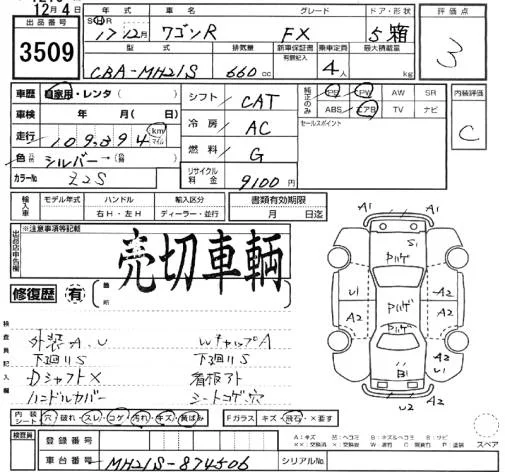 12月4日
出品番号
3509
年式 車名 グレード ドア・形状
SHR 17年12月 ワゴンR FX 5 箱
型式 排気量 新車保証書 乗車定員 最大積載量
有無記入
CBA-MH21S 660cc 4人 kg
評価点
3
車歴 自家用・レンタ( )
車検 年 月( )
走行 109,394 kmマイル
色 シルバー→( )
カラーNo. Z2S
シフト CAT
冷房 AC
燃料 G
リサイクル料金 9100円
純正のみ PS PW AW SR
ABS エアB TV ナビ
セールスポイント
内装評価
C
輸入車 モデル年式 ハンドル 輸入区分
右H・左H ディーラー・並行
書類有効期限
月 日迄
出品店申告欄
※注意事項等記載
売切車輌
修復歴 有 箇所
検査員記入欄
外装A.U WチップA
下回りS 下回りS
DシャフトX 看板アト
ハンドルカバー シートコゲ穴
A1 A1
S1
Pハゲ
U1 A2
Pハゲ
A2 A2
Pハゲ
A2 U1
B1
U2 A2
内装シート 穴 破れ・スレ・コゲ・汚れ・キズ・黄ばみ
Fガラス キズ・飛石・×要す
A:キズ U:ヘコミ B:キズ&ヘコミ S:サビ
スペア
検査員
登録番号
車台番号 MH21S-874506 シリアルNo.